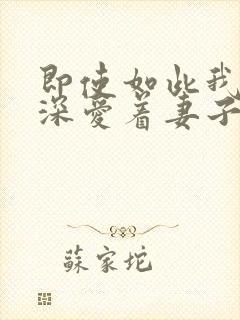 即使如此我
深爱着妻子
蘇家坨